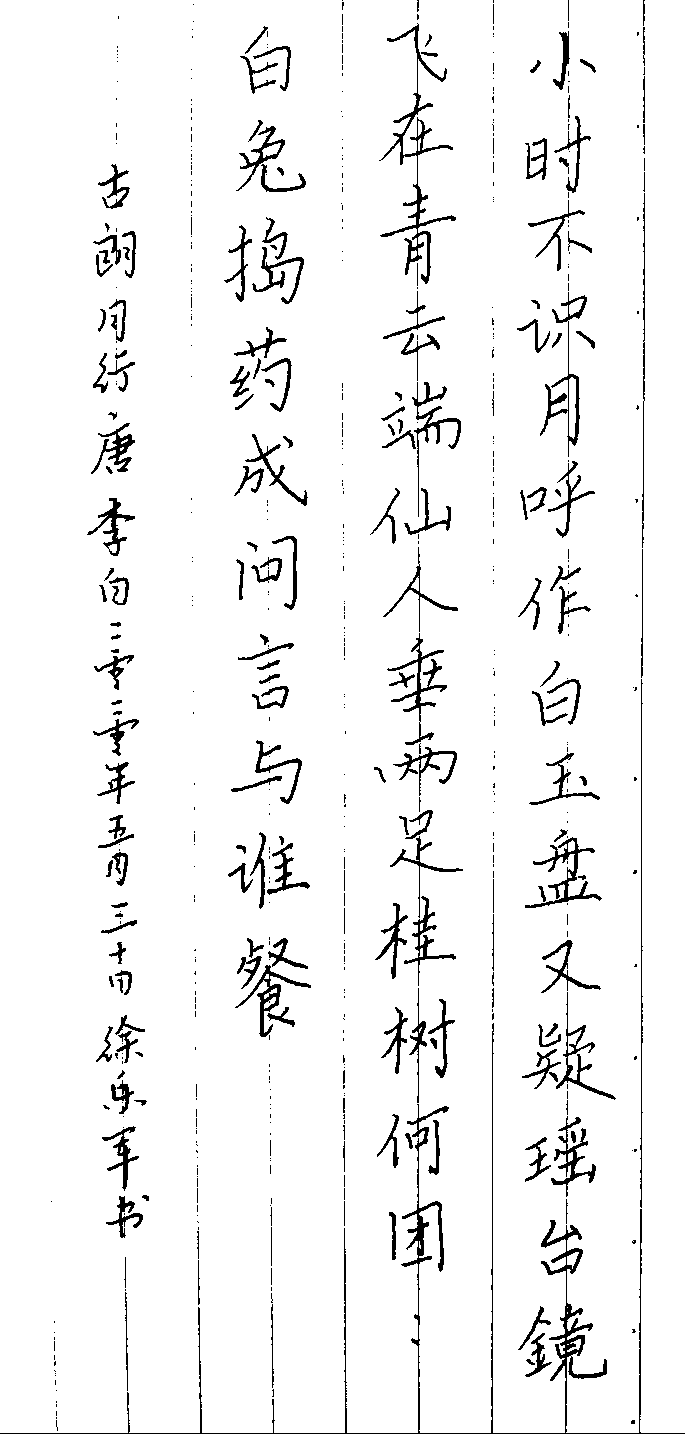 小时不识月呼作白玉盘又疑瑶台鏡
飞在青云端仙人垂两足桂树何团:
白兔捣药成问言与谁餐
古朗月行唐李白二零二零年五月三十日徐乐军书